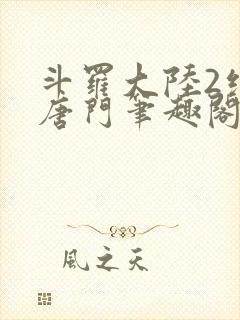 斗羅大陸2
唐門筆趣閣
風之天